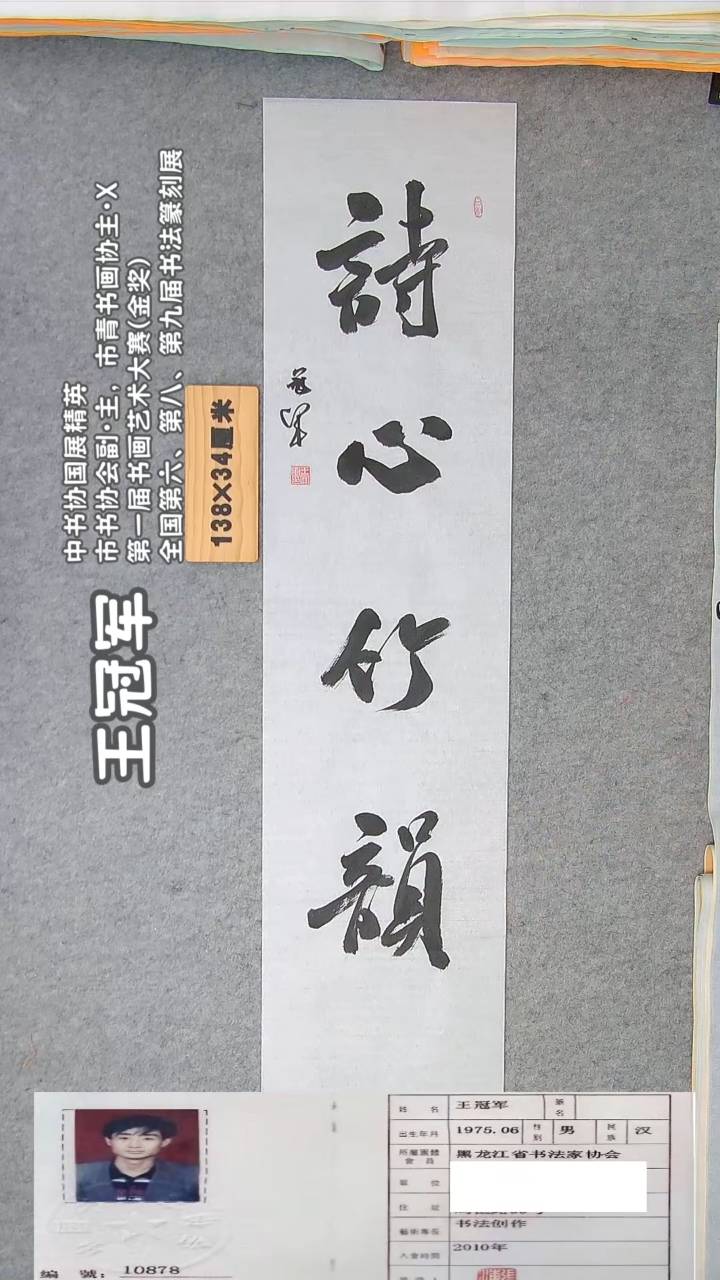 詩心竹韻
冠军
王冠军
中书协国展精英
市书协会副·主，市青书画协主·X
第一届书画艺术大赛(金奖)
全国第六、第八、第九届书法篆刻展
138×34厘米
編 號： 10878
姓 名 王冠军 筆名
出生年月 1975.06 性別 男 民族 汉
所屬團體會員 黑龙江省书法家协会
單 位
住 址
藝術專長 书法创作
入會時間 2010年